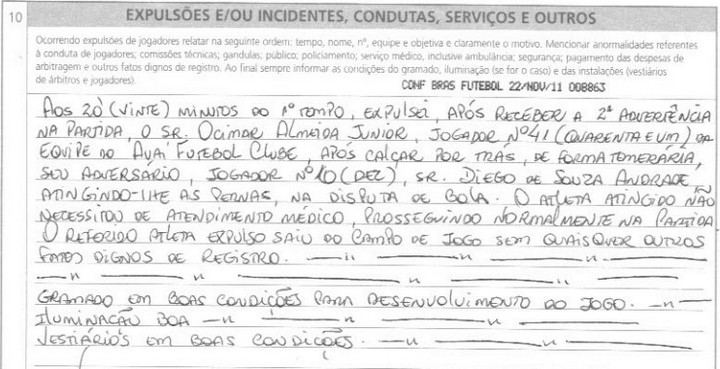 10
EXPULSÕES E/OU INCIDENTES, CONDUTAS, SERVIÇOS E OUTROS
Ocorrendo expulsões de jogadores relatar na seguinte ordem: tempo, nome, nº, equipe e objetiva e claramente o motivo. Mencionar anormalidades referentes
à conduta de jogadores; comissões técnicas; gandulas; público; policiamento; serviço médico, inclusive ambulância; segurança; pagamento das despesas de
arbitragem e outros fatos dignos de registro. Ao final sempre informar as condições do gramado, iluminação (se for o caso) e das instalações (vestiários
de árbitros e jogadores).
CONF BRAS FUTEBOL 22/NOV/11 008863
AOS 20 (VINTE) MINUTOS DO 1º TEMPO, EXPULSEI, APÓS RECEBER A 2ª ADVERTÊNCIA
NA PARTIDA, O SR. OCIMAR ALMEIDA JUNIOR, JOGADOR Nº 41 (QUARENTA E UM) DA
EQUIPE DO AVAÍ FUTEBOL CLUBE, APÓS CALÇAR POR TRÁS, DE FORMA TEMERÁRIA,
SEU ADVERSARIO, JOGADOR Nº 10 (DEZ), SR. DIEGO DE SOUZA ANDRADE
ATINGINDO-LHE AS PERNAS, NA DISPUTA DE BOLA. O ATLETA ATINGIDO NÃO
NECESSITOU DE ATENDIMENTO MÉDICO, PROSSEGUINDO NORMALMENTE NA PARTIDA
O REFERIDO ATLETA EXPULSO SAIU DO CAMPO DE JOGO SEM QUAISQUER OUTROS
FATOS DIGNOS DE REGISTRO. —"— —"— —"—
—"— —"— —"— —"—
GRAMADO EM BOAS CONDIÇÕES PARA DESENVOLVIMENTO DO JOGO. —"—
ILUMINAÇÃO BOA —"— —"— —"—
VESTIÁRIOS EM BOAS CONDIÇÕES. —"— —"—